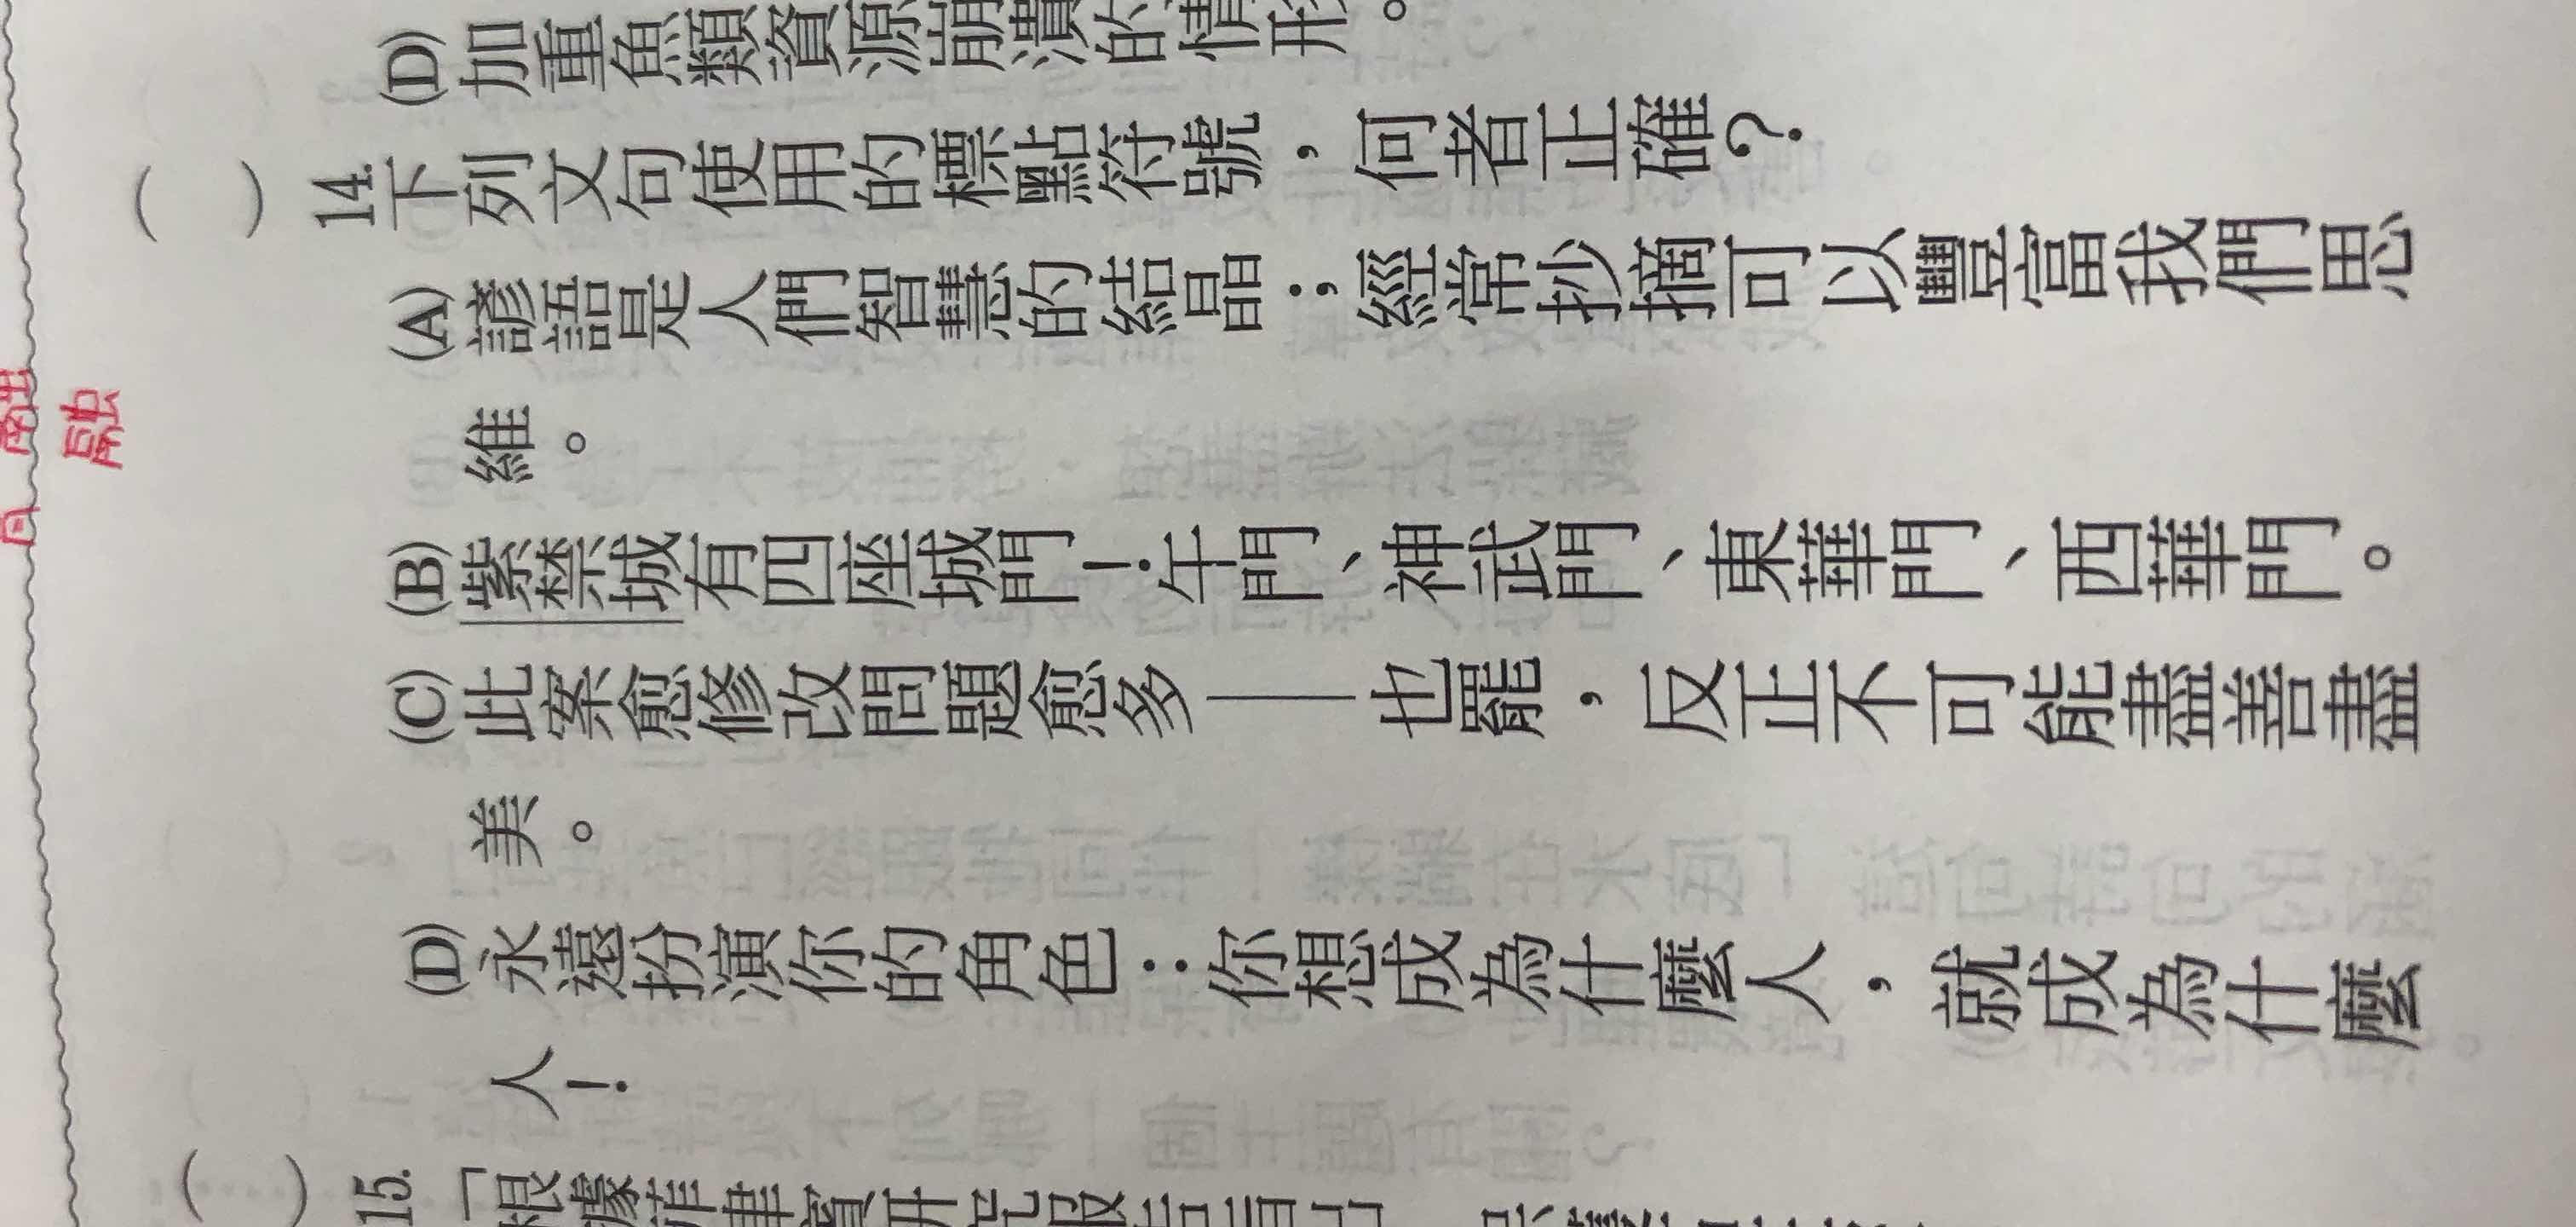 (D)加重魚類資源崩潰的情形。
( )14.下列文句使用的標點符號，何者正確？
(A)諺語是人們智慧的結晶；經常抄摘可以豐富我們思
維。
(B)紫禁城有四座城門！午門、神武門、東華門、西華門。
(C)此案愈修改問題愈多──也罷，反正不可能盡善盡
美。
(D)永遠扮演你的角色：你想成為什麼人，就成為什麼
人！
( )15.「根據菲律賓研究報告指出